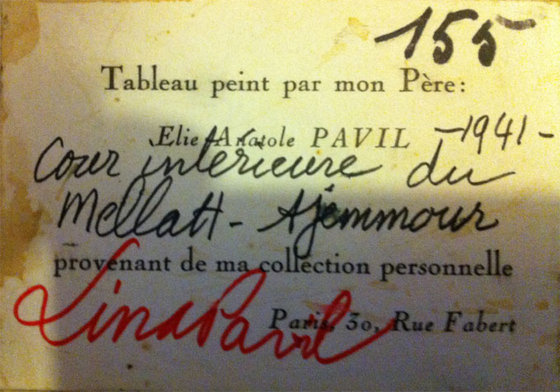 155
Tableau peint par mon Père:
Elie Anatole PAVIL -1941-
Cour intérieure du
Mellatt - Ajemmour
provenant de ma collection personnelle
Paris, 30, Rue Fabert
Lina Pavil